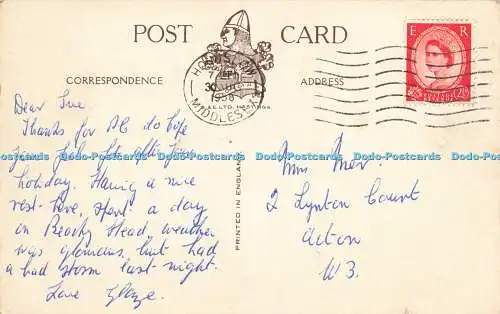 POST CARD
CORRESPONDENCE
ADDRESS
HOUNSLOW
7
30
1958
MIDDLESEX
LTD. HASTINGS
E R
2½
POSTAGE
REVENUE
PRINTED IN ENGLAND
Dear Sue
Thanks for P.C. do hope
you feel after your
holiday. Having a nice
rest here, spent a day
on Beachy Head, weather
was glamorous, but had
a bad storm last night.
Love
Dodo-Postcards Dodo-Postcards Dodo-Postcards Dodo-Postcards Dodo-Postcards Dodo-Postcards
Mrs
2 Lynton Court
Acton
W3.